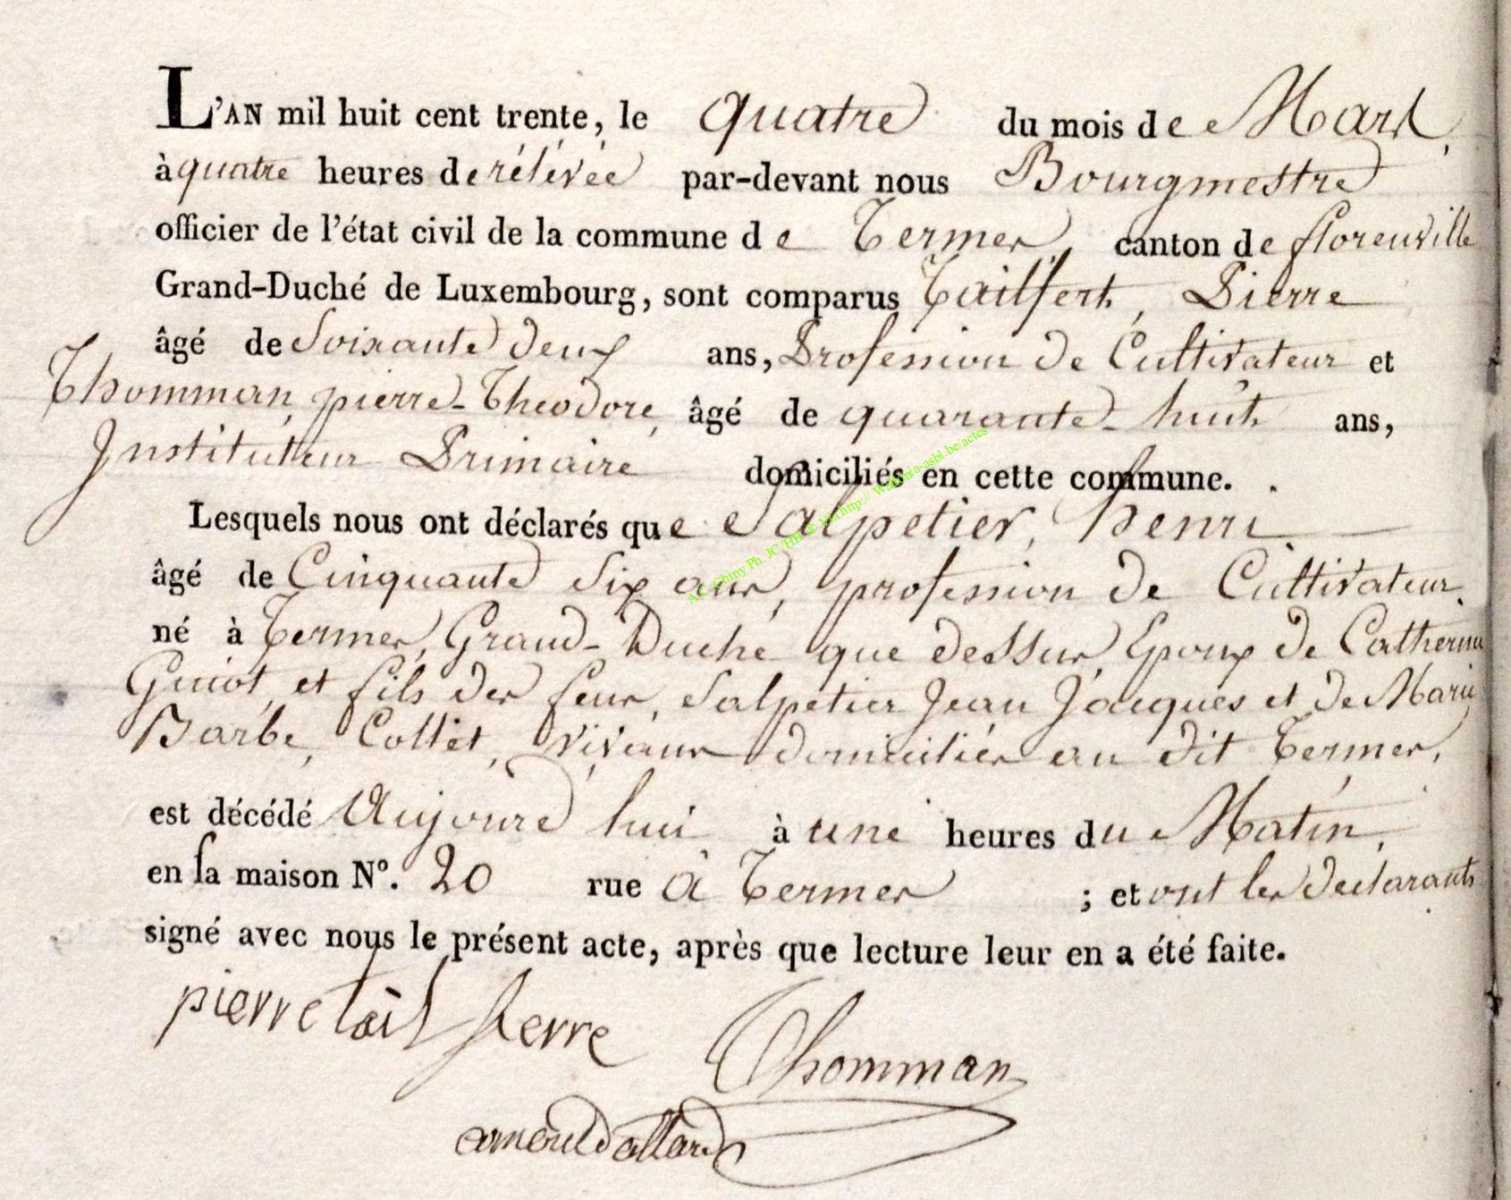 L'AN mil huit cent trente, le quatre du mois de Mars,
à quatre heures de rélévée par-devant nous Bourgmestre
officier de l'état civil de la commune de Termes, canton de florenville
Grand-Duché de Luxembourg, sont comparus Tailfert, Pierre
âgé de Soixante deux ans, Profession de Cultivateur et
Thomman, pierre-Théodore, âgé de quarante-huit ans,
Instituteur Primaire domiciliés en cette commune.
Lesquels nous ont déclarés que Salpetier, henri
âgé de Cinquante Six ans, profession de Cultivateur,
né à Termes, Grand-Duché que dessus, Epoux de Catherine
Guiot, et fils des feus, Salpetier Jean Jacques et de Marie
Barbe, Collet, vivans domiciliés au dit Termes,
est décédé Aujourd hui à une heures du Matin,
en sa maison N°. 20 rue à Termes ; et ont les declarants
signé avec nous le présent acte, après que lecture leur en a été faite.
pierre tailferre Thomman
arnould allard